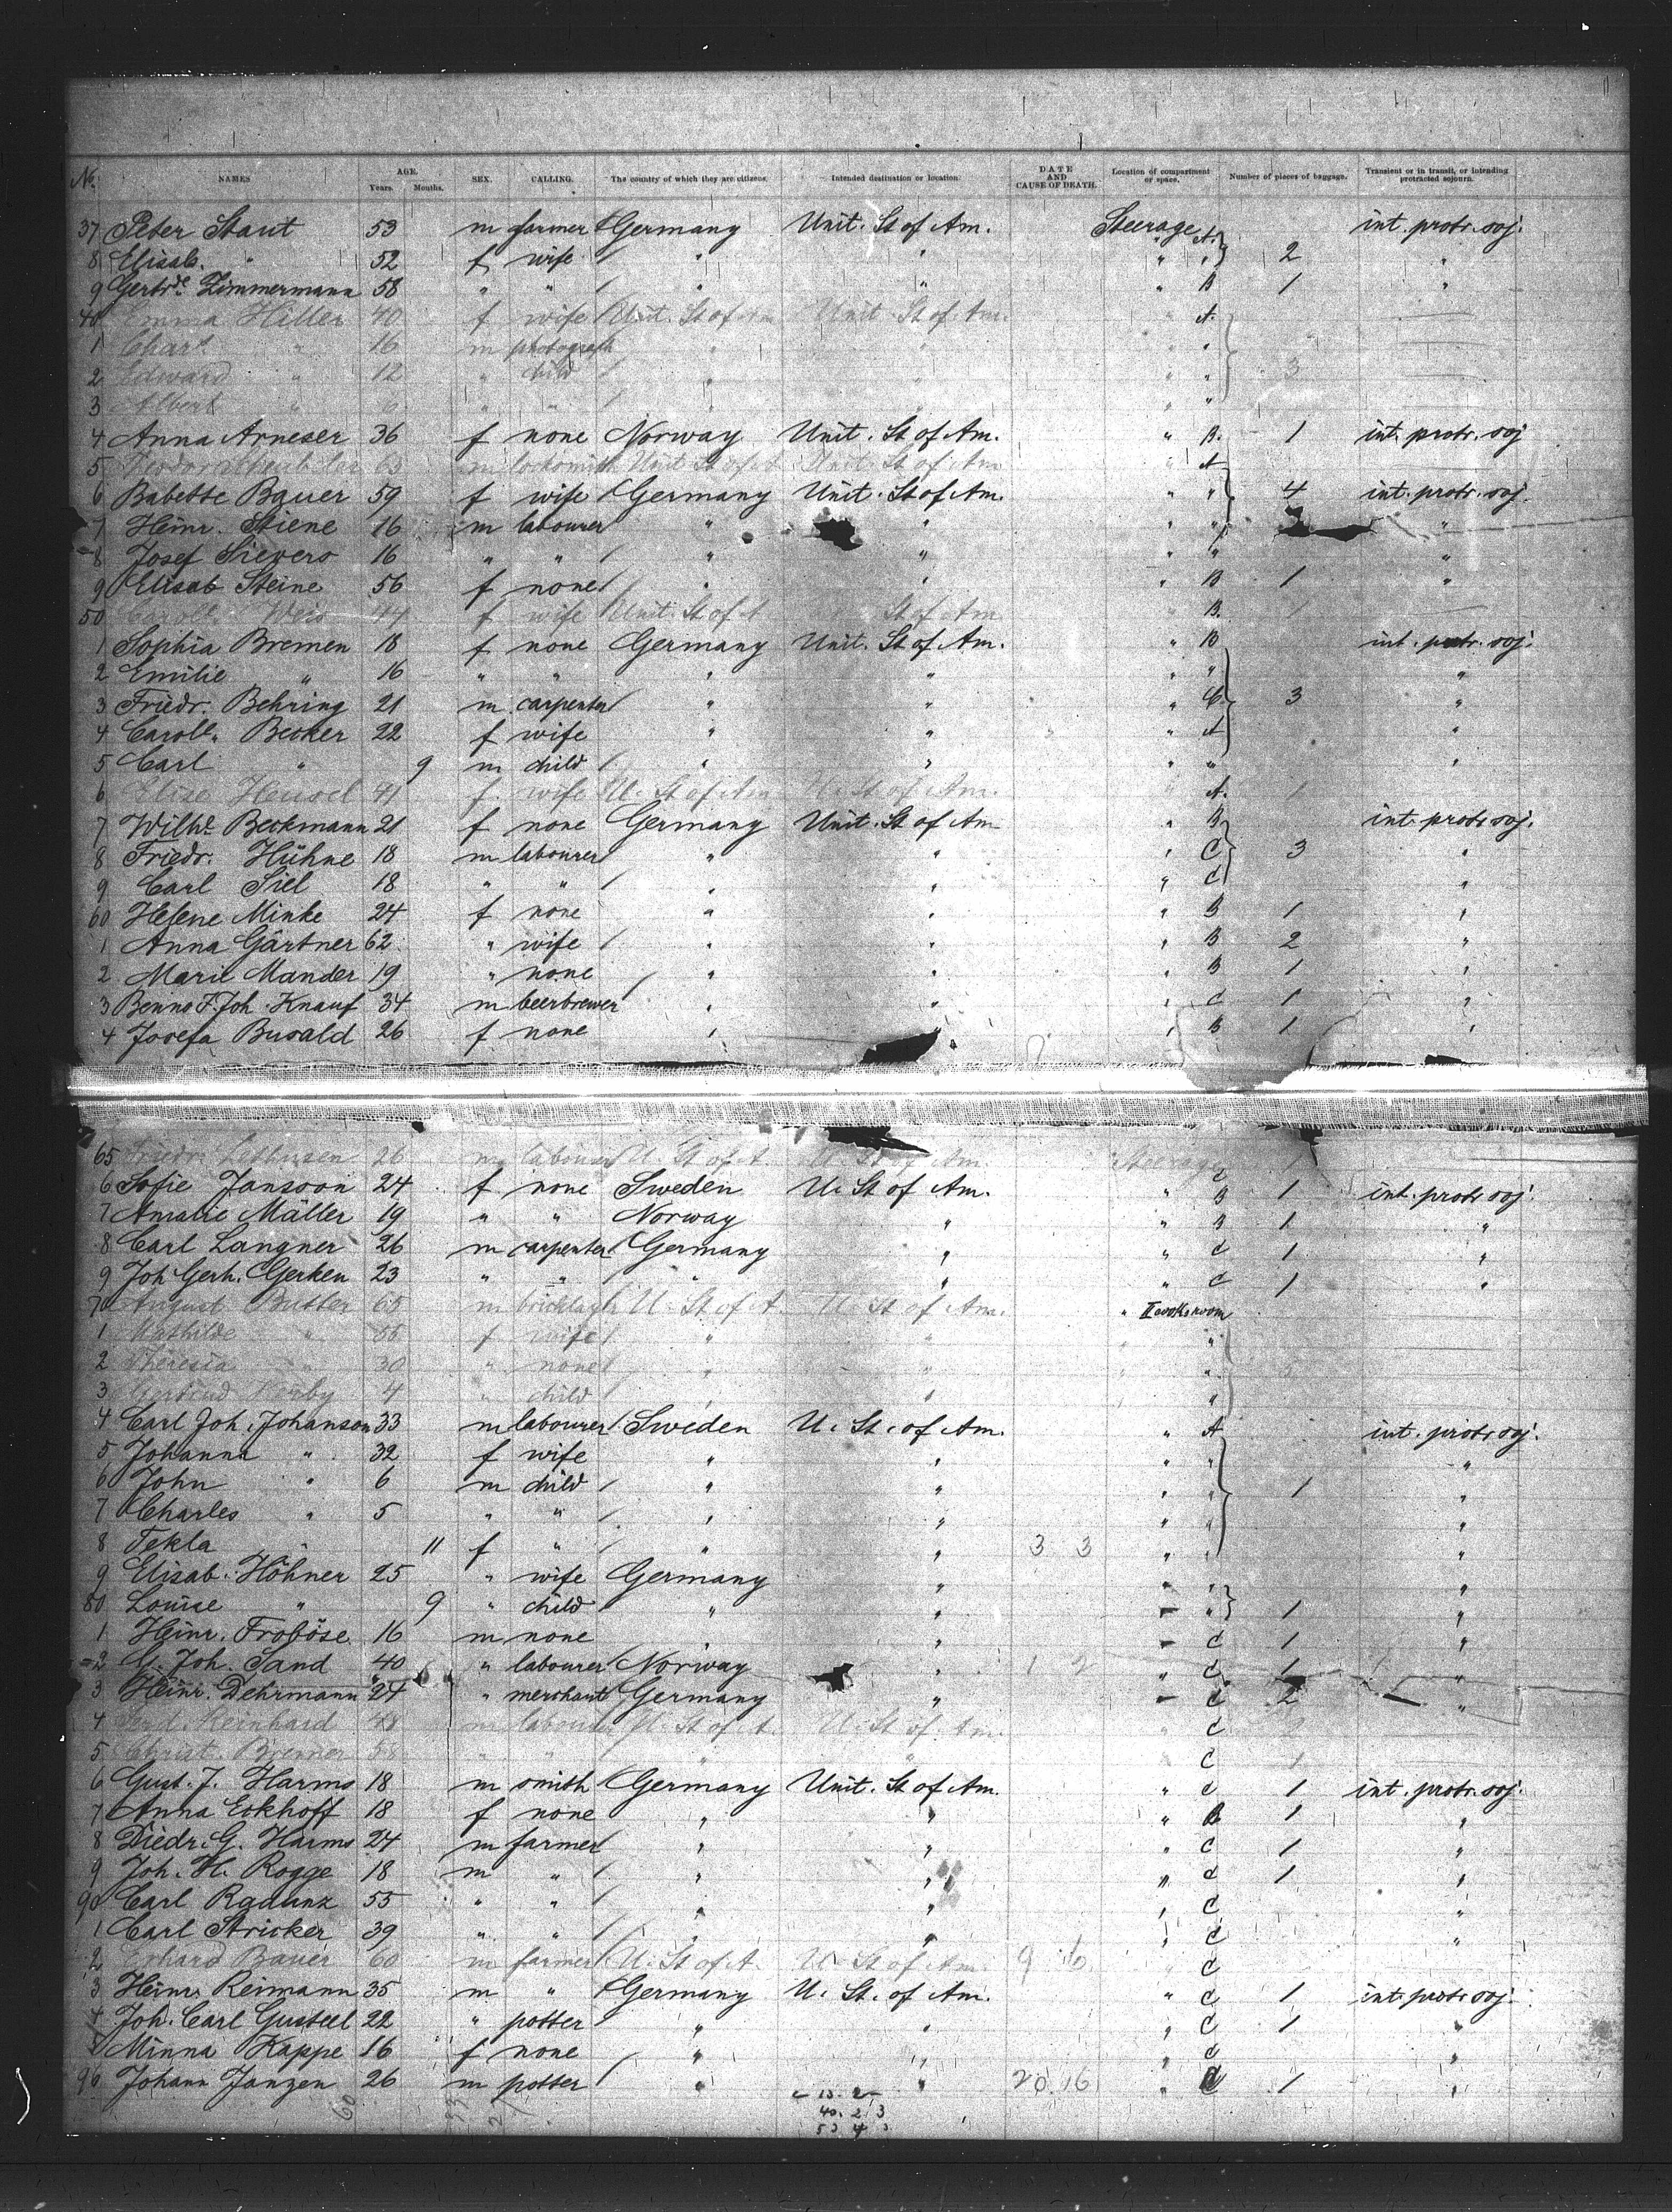 No. NAMES AGE. Years. Months. SEX. CALLING. The country of which they are citizens. Intended destination or location. DATE AND CAUSE OF DEATH. Location of compartment or space. Number of pieces of baggage. Transient or in transit, or intending protracted sojourn.
37 Peter Staut 53 m farmer Germany Unit. St of Am. Steerage A. int. protr. soj.
8 Elisab. " 52 f wife " " " " 2 "
9 Gertrde Zimmermann 58 " " " " " B 1 "
40 Emma Hiller 40 f wife Unit. St of Am Unit St of Am. " A.
1 Charl " 16 m photograph " " " "
2 Edward " 12 " child " " " " 3
3 Albert " 6 " " " " " "
4 Anna Arneser 36 f none Norway Unit. St of Am. " B. 1 int. protr. soj
5 63 m locksmith Unit St of A Unit. St of Am " A
6 Babette Bauer 59 f wife Germany Unit. St of Am. " " 4 int. protr. soj.
7 Heinr. Stiene 16 m labourer " " " " "
8 Josef Sievers 16 " " " " " " "
9 Elisab Steine 56 f none " " " B 1 "
50 Weis 44 f wife Unit. St of A St of Am " B. 1
1 Sophia Bremen 18 f none Germany Unit. St of Am. " B int. protr. soj.
2 Emilie " 16 " " " " " " "
3 Friedr. Behring 21 m carpenter " " " C. 3 "
4 Carole. Becker 22 f wife " " " A "
5 Carl " 9 m child " " " " "
6 Elise Hensel 41 f wife U. St of Am U. St of Am. " A. 1
7 Wilhe. Beckmann 21 f none Germany Unit. St of Am " B int. protr soj.
8 Friedr. Hühne 18 m labourer " " " C 3 "
9 Carl Siel 18 " " " " " C "
60 Helene Minke 24 f none " " " B 1 "
1 Anna Gärtner 62 " wife " " " B 2 "
2 Marie Mander 19 " none " " " B 1 "
3 Benno F. Joh Knauf 34 m beerbrewer " " " C 1 "
4 Josefa Busald 26 f none " " B 1 "
65 Friedr. Lethusen 26 m labourer U. St of A. U. St of Am. Steerage C 1
6 Sofie Jansson 24 f none Sweden U. St of Am. " B 1 int. protr soj.
7 Amalie Mäller 19 " " Norway " " B 1 "
8 Carl Langner 26 m carpenter Germany " " C 1 "
9 Joh Gerh. Gerken 23 " " " " " C 1 "
70 August Butler 65 m bricklay U. St of A. U. St of Am. " II cooks room
1 Mathilde " 55 f wife " " " "
2 Theresia " 30 " none " " " "
3 Gertrud 4 " child " " "
4 Carl Joh. Johanson 33 m labourer Sweden U. St. of Am. " A int. protr soj.
5 Johanna " 32 f wife " " " " "
6 John " 6 m child " " " " 1 "
7 Charles " 5 " " " " " " "
8 Tekla " 11 f " " " 3 3 " " "
9 Elisab. Höhner 25 " wife Germany " " " "
80 Louise " 9 " child " " " " 1 "
1 Heinr. Froböse 16 m none " " " C 1 "
2 G. Joh. Sand 40 " labourer Norway " 1 2 " C 1 "
3 Heinr. Dehrmann 24 " merchant Germany " " C 2 "
4 Ferd. Reinhard 48 m labourer U. St of A. U. St of Am. " C 2
5 Christ. Bremer 58 " " " " C 1
6 Gust. J. Harms 18 m smith Germany Unit. St of Am. " C 1 int. protr. soj.
7 Anna Eckhoff 18 f none " " " B 1 "
8 Diedr. G. Harms 24 m farmer " " " C 1 "
9 Joh. H. Rogge 18 m " " " " C 1 "
90 Carl Radunz 55 " " " " " C "
1 Carl Stricker 39 " " " " " C "
2 Bauer 60 m farmer U. St of A. U. St of Am. 9 6 " C
3 Heinr. Reimann 35 m " Germany U. St. of Am. " C 1 int. protr soj.
4 Joh. Carl Gusteel 22 " potter " " " C 1 "
5 Minna Kappe 16 f none " " " C "
96 Johann Janzen 26 m potter " " 20. 16 " C 1 "
60 33 27 13. 2
40. 2 3
53 4 3